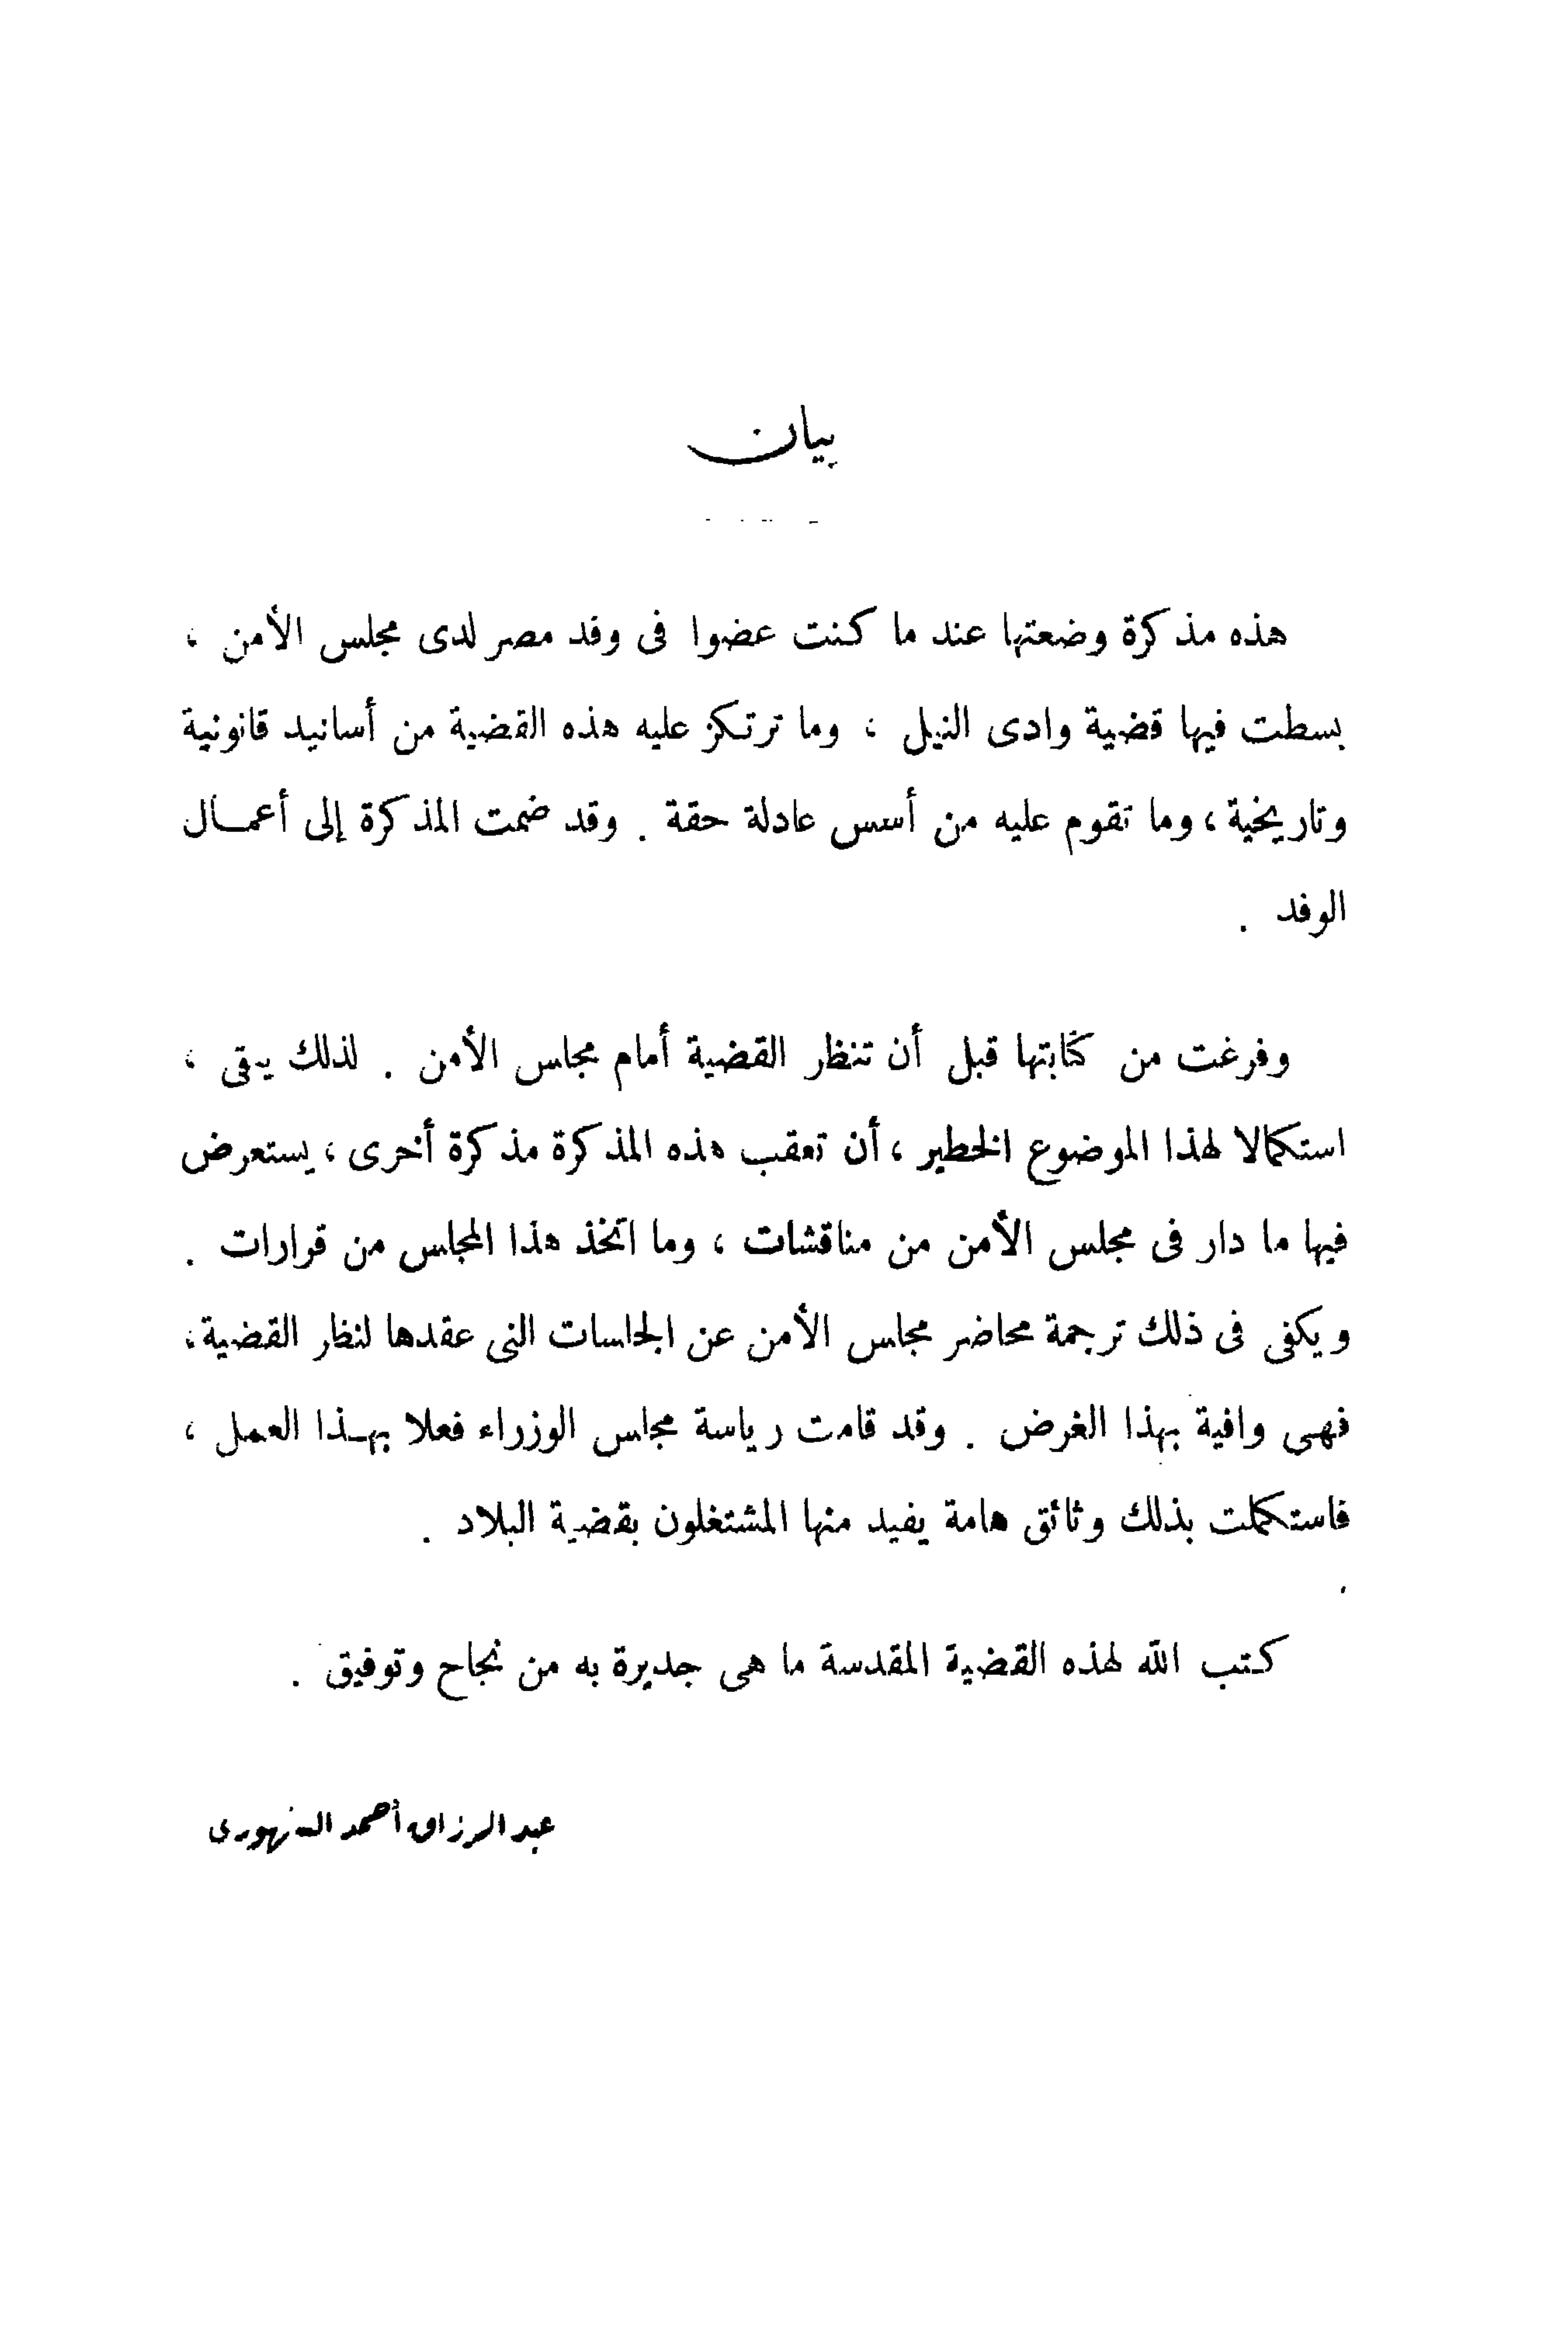 بيان
هذه مذكرة وضعتها عند ما كنت عضوا فى وفد مصر لدى مجلس الأمن ،
بسطت فيها قضية وادى النيل ، وما ترتكز عليه هذه القضية من أسانيد قانونية
وتاريخية ، وما تقوم عليه من أسس عادلة حقة . وقد ضمت المذكرة إلى أعمال
الوفد .
وفرغت من كتابتها قبل أن تنظر القضية أمام مجلس الأمن . لذلك يبقى ،
استكمالا لهذا الموضوع الخطير ، أن تعقب هذه المذكرة مذكرة أخرى ، يستعرض
فيها ما دار فى مجلس الأمن من مناقشات ، وما اتخذ هذا المجلس من قرارات .
ويكفى فى ذلك ترجمة محاضر مجلس الأمن عن الجلسات التى عقدها لنظر القضية ،
فهى وافية بهذا الغرض . وقد قامت رياسة مجلس الوزراء فعلا بهذا العمل ،
فاستكملت بذلك وثائق هامة يفيد منها المشتغلون بقضية البلاد .
كتب الله لهذه القضية المقدسة ما هى جديرة به من نجاح وتوفيق .
عبد الرزاق أحمد السنهورى